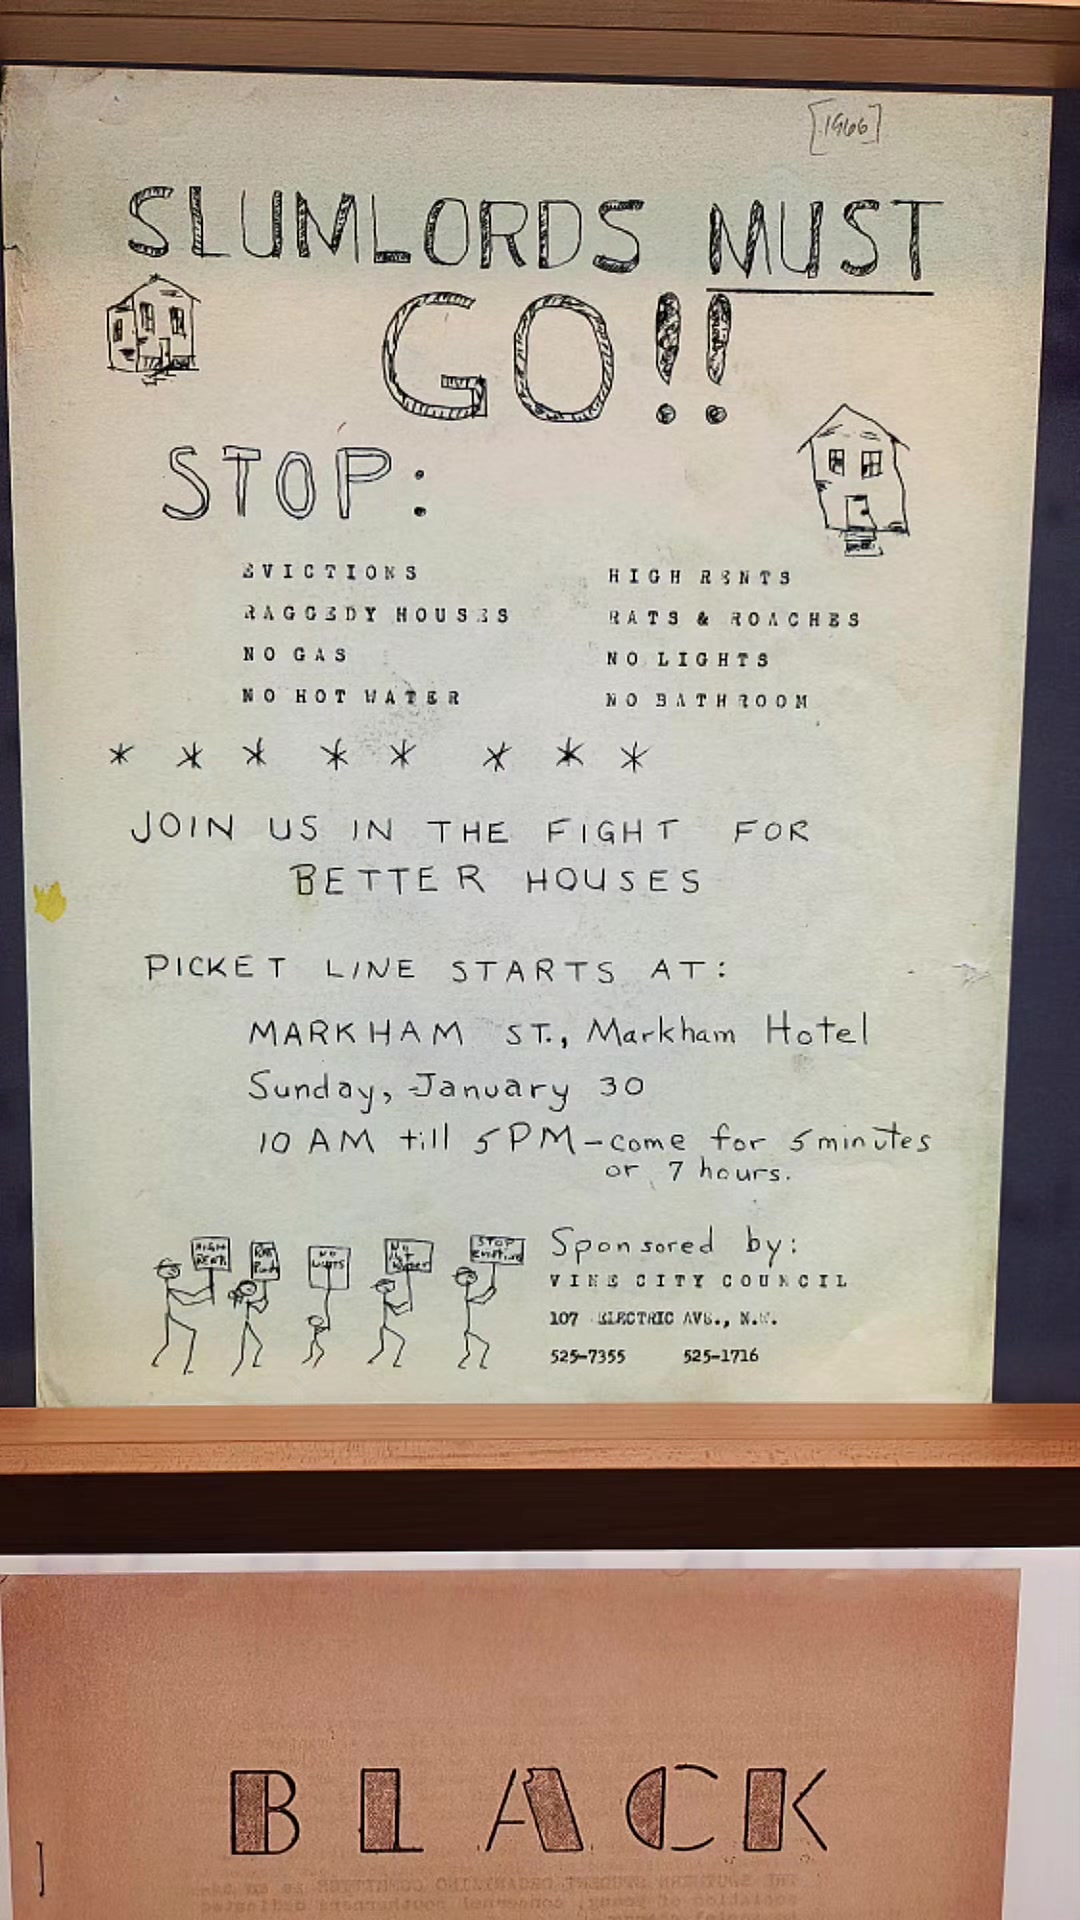 [1966]
SLUMLORDS MUST
GO!!
STOP:
EVICTIONS HIGH RENTS
RAGGEDY HOUSES RATS & ROACHES
NO GAS NO LIGHTS
NO HOT WATER NO BATHROOM
* * * * * * * *
JOIN US IN THE FIGHT FOR
BETTER HOUSES
PICKET LINE STARTS AT:
MARKHAM ST., Markham Hotel
Sunday, January 30
10 AM till 5 PM - come for 5 minutes
or 7 hours.
HIGH
RENTS
NO
LIGHTS
NO
Hot
Water
STOP
Evictions
Sponsored by:
VINE CITY COUNCIL
107 ELECTRIC AVE., N.W.
525-7355 525-1716
BLACK